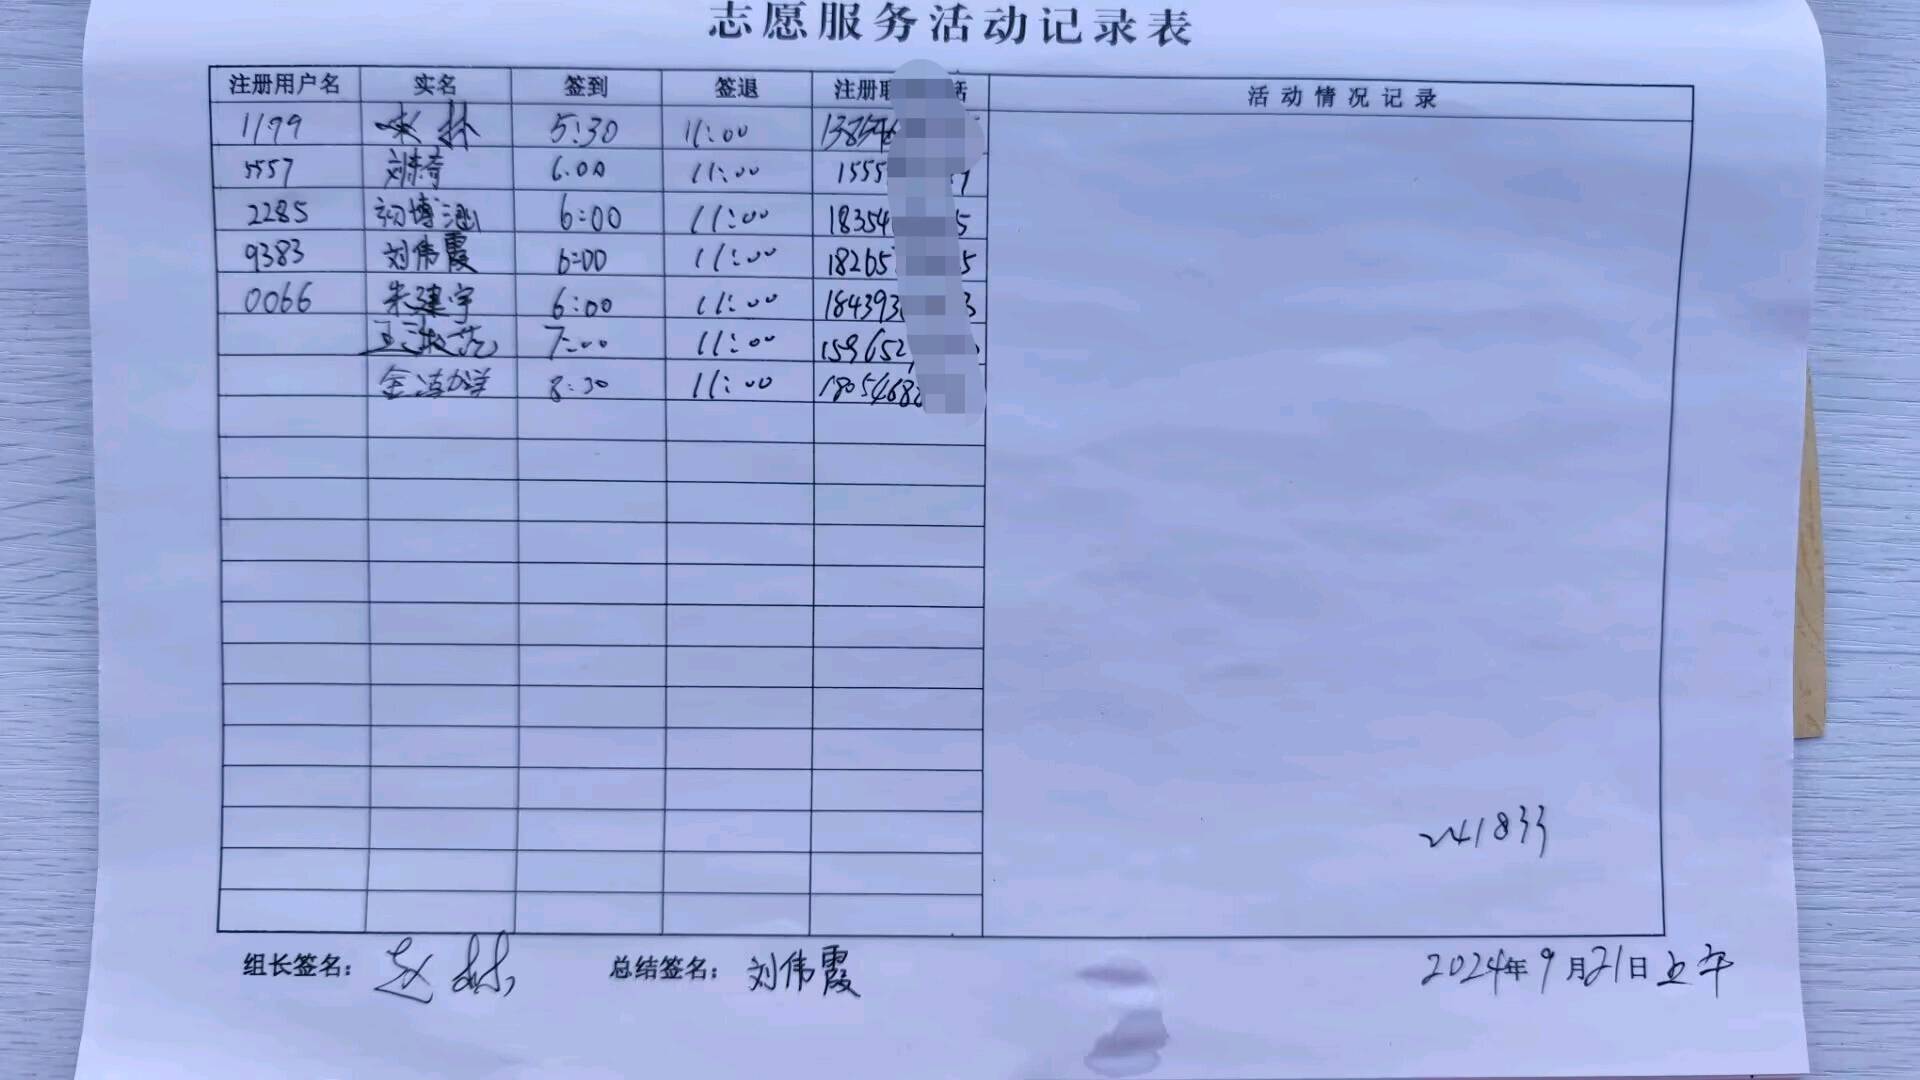 志愿服务活动记录表
注册用户名 实名 签到 签退 注册联 话 活动情况记录
1179 林 5:30 11:00 13854
5557 刘 奇 6:00 11:00 1555
2285 初博涵 6:00 11:00 18354 5
9383 刘伟霞 6:00 11:00 18265 5
0066 朱建宇 6:00 11:00 184393 3
王 7:00 11:00 159652
金 8:30 11:00 18054682
241833
组长签名: 赵林 总结签名: 刘伟霞 2024年9月21日上午